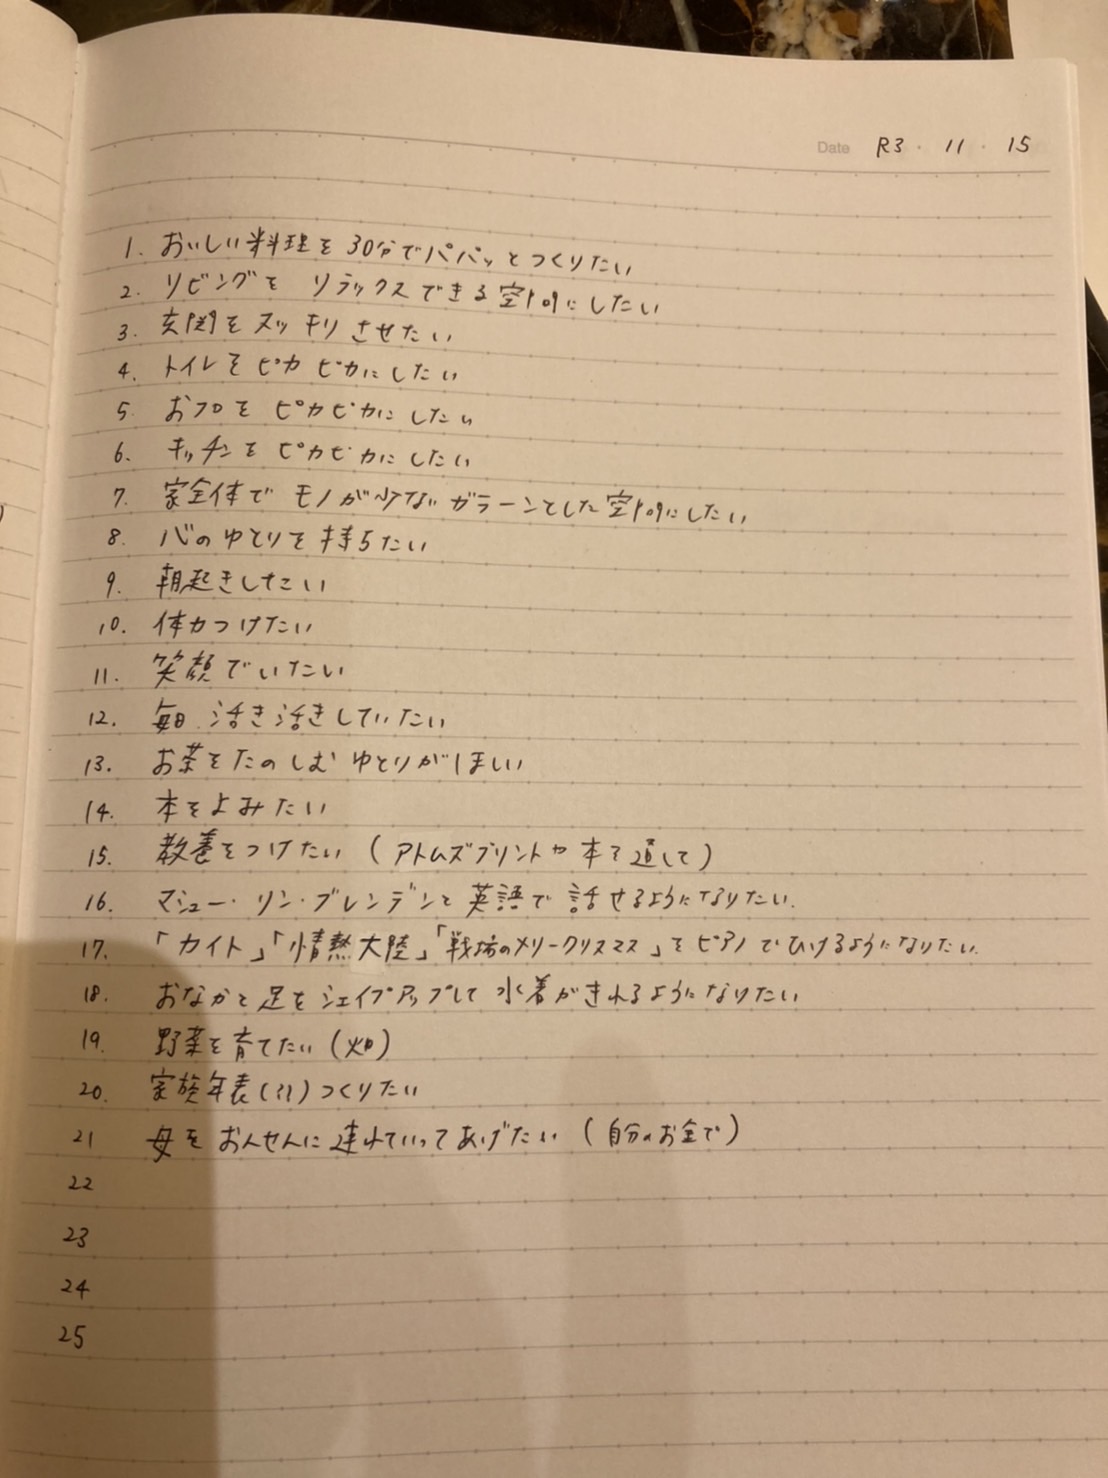 Date R3・11・15
1. おいしい料理を30分でパパッとつくりたい
2. リビングを リラックスできる空間にしたい
3. 玄関をスッキリさせたい
4. トイレをピカピカにしたい
5. おフロをピカピカにしたい
6. キッチンをピカピカにしたい
7. 家全体でモノが少なガラーンとした空間にしたい
8. 心のゆとりを持ちたい
9. 朝起きしたい
10. 体力つけたい
11. 笑顔でいたい
12. 毎日 活き活きしていたい
13. お茶をたのしむゆとりがほしい
14. 本をよみたい
15. 教養をつけたい (アトムズプリントや本を通して)
16. マシュー・リン・ブレンデンと英語で話せるようになりたい.
17. 「カイト」「情熱大陸」「戦場のメリークリスマス」をピアノでひけるようになりたい.
18. おなかと足をシェイプアップして水着がきれるようになりたい
19. 野菜を育てたい (畑)
20. 家族年表 つくりたい
21 母をおんせんに連れていってあげたい (自分のお金で)
22
23
24
25